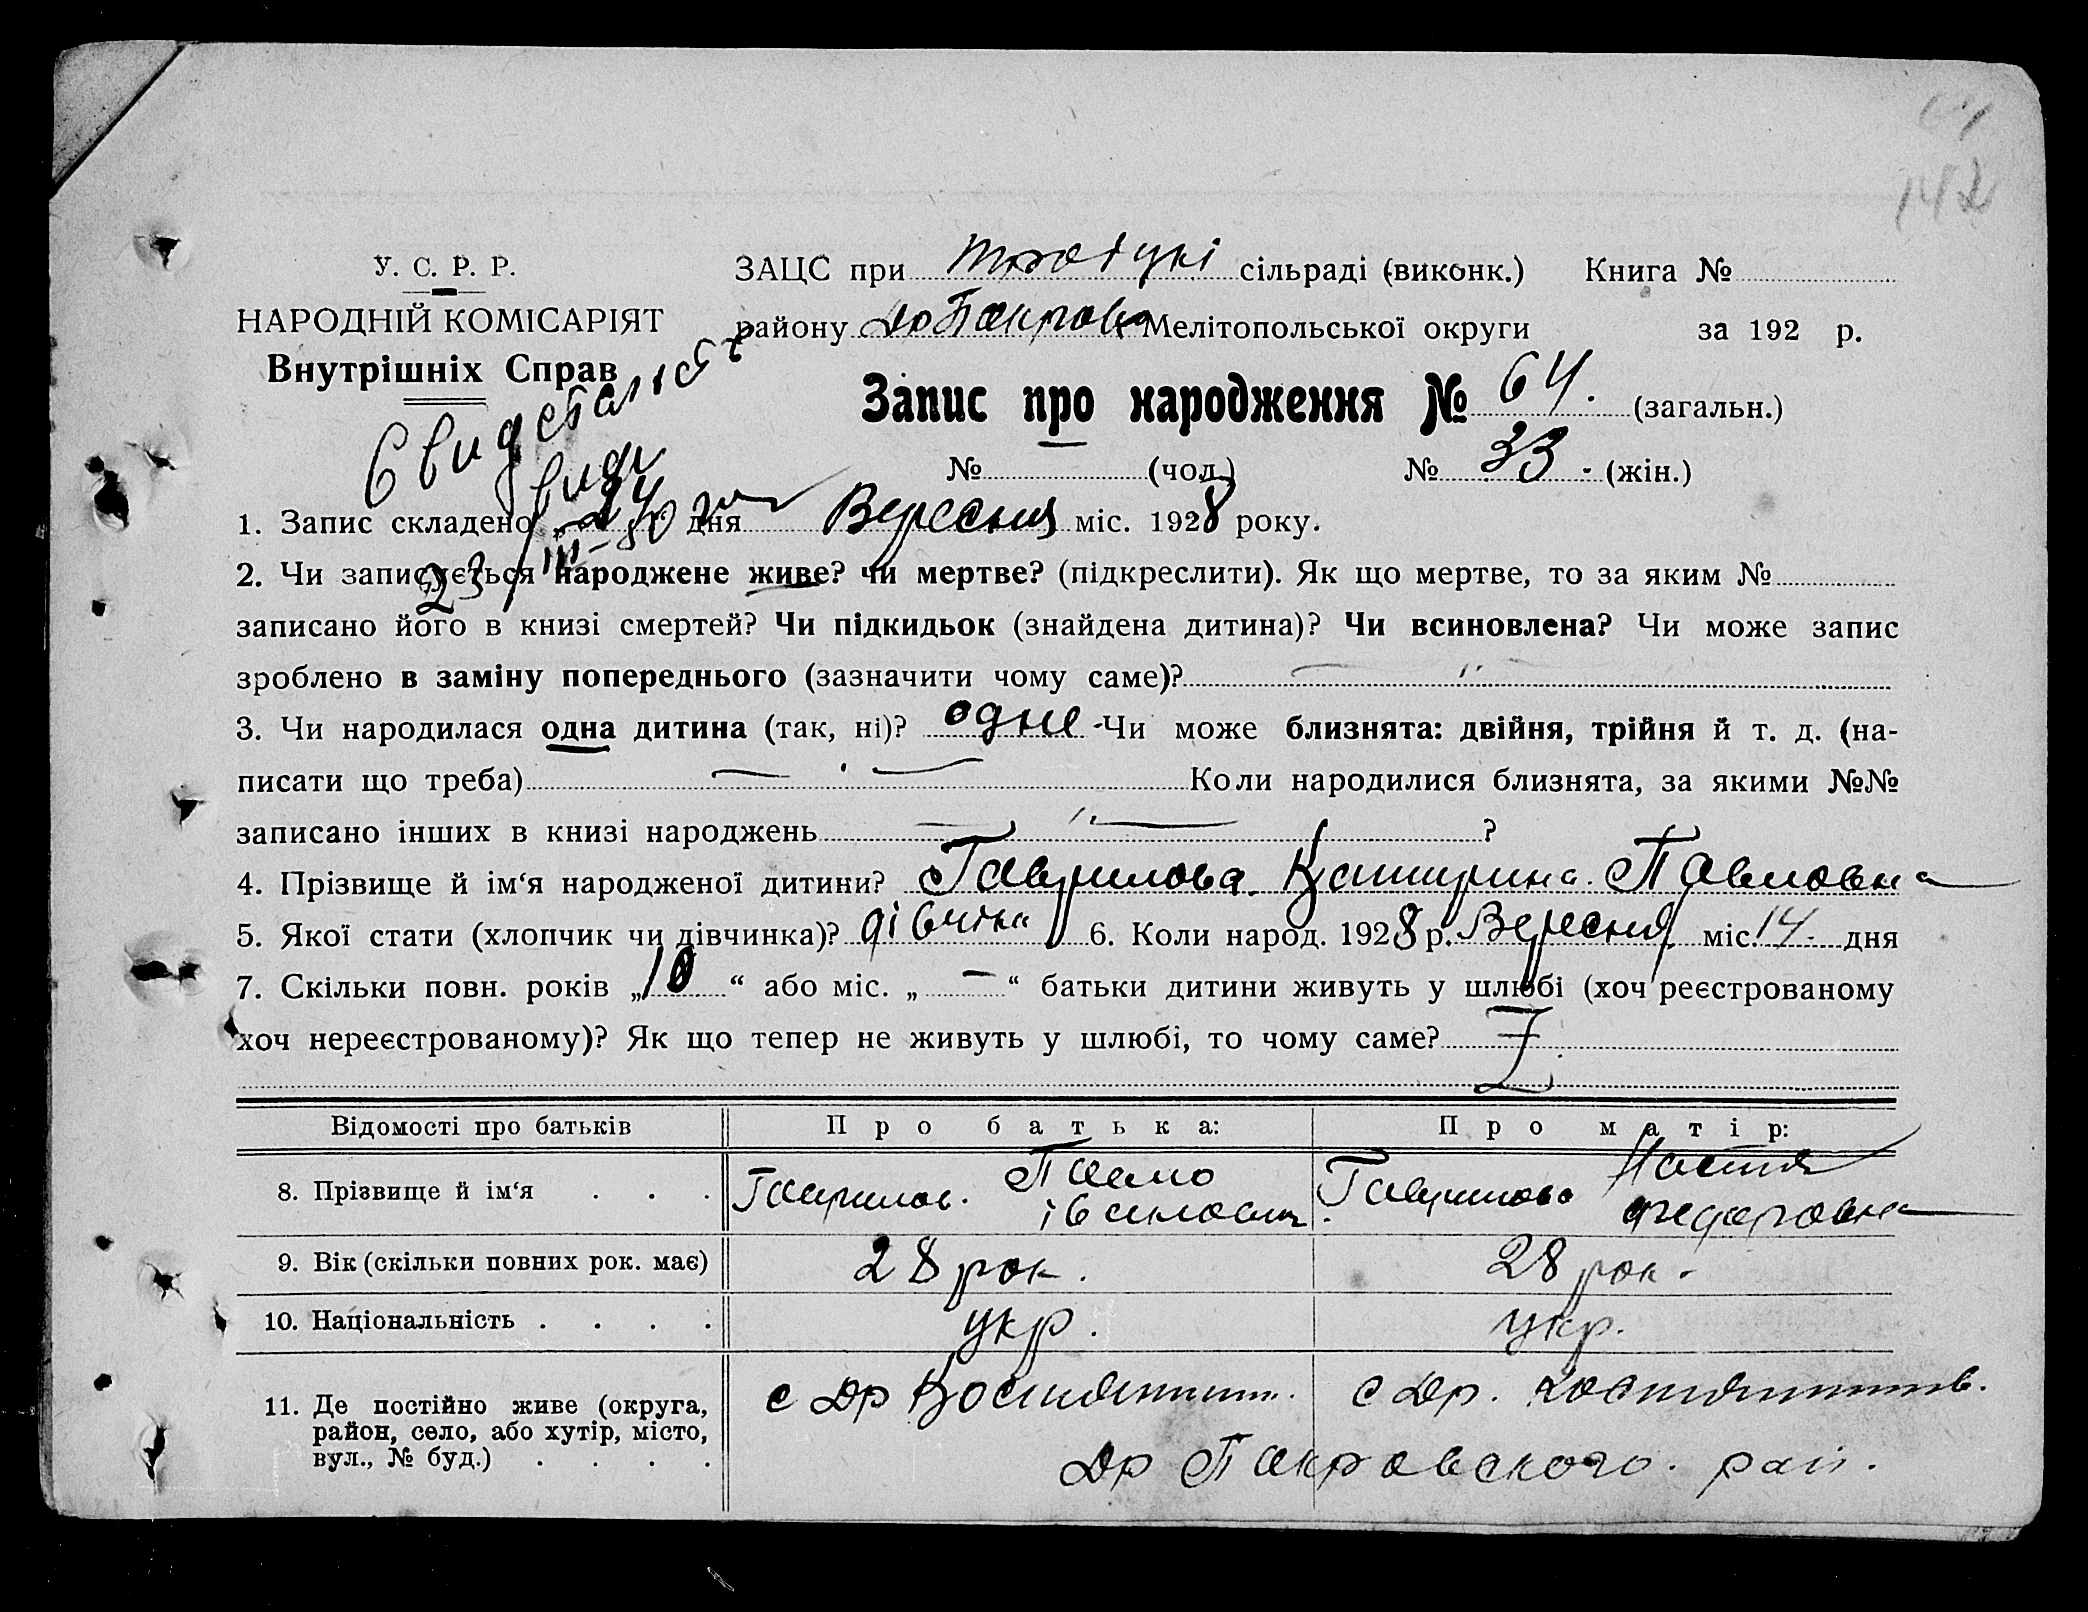 142
У. С. Р. Р.
НАРОДНІЙ КОМІСАРІЯТ
Внутрішніх Справ
ЗАЦС при Троіцкі сільраді (виконк.) Книга №
району др Пакров Мелітопольської округи за 192 р.
Запис про народження № 64. (загальн.)
№ (чол.) № 33 - (жін.)
1. Запис складено 24 дня Вересня міс. 1928 року.
23/III-50
2. Чи записується народжене живе? чи мертве? (підкреслити). Як що мертве, то за яким №
записано його в книзі смертей? Чи підкидьок (знайдена дитина)? Чи всиновлена? Чи може запис
зроблено в заміну попереднього (зазначити чому саме)? — " —
3. Чи народилася одна дитина (так, ні)? одне - Чи може близнята: двійня, трійня й т. д. (на-
писати що треба) Коли народилися близнята, за якими №№
записано інших в книзі народжень — " — ?
4. Прізвище й ім‘я народженої дитини? Гаврилова Катирина Павловна
5. Якої стати (хлопчик чи дівчинка)? дівчіна 6. Коли народ. 1928 р. Вересня міс. 14. дня
7. Скільки повн. років „10“ або міс. „—“ батьки дитини живуть у шлюбі (хоч реєстрованому
хоч нереєстрованому)? Як що тепер не живуть у шлюбі, то чому саме?
Відомості про батьків Про батька: Про матір:
8. Прізвище й ім‘я . . . Гаврилов. Павло Гаврилова Настя Федоровна
9. Вік (скільки повних рок. має) 28 рок. 28 рок.
10. Національність . . . . укр. укр.
11. Де постійно живе (округа, с Др Костянтин. с Др. Костянтинів.
район, село, або хутір, місто,
вул., № буд.) . . . . Др Пакровского. рай.